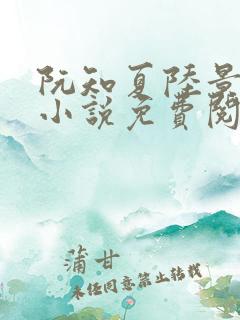 阮知夏陸景
小說免費閱
蒲甘
未经同意禁止转载